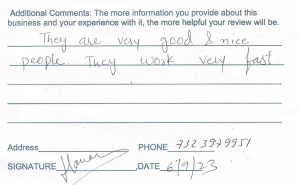 Additional Comments: The more information you provide about this
business and your experience with it, the more helpful your review will be.
They are very good & nice
people. They work very fast.
Address
PHONE 732 3979951
SIGNATURE
,DATE 6/9/23